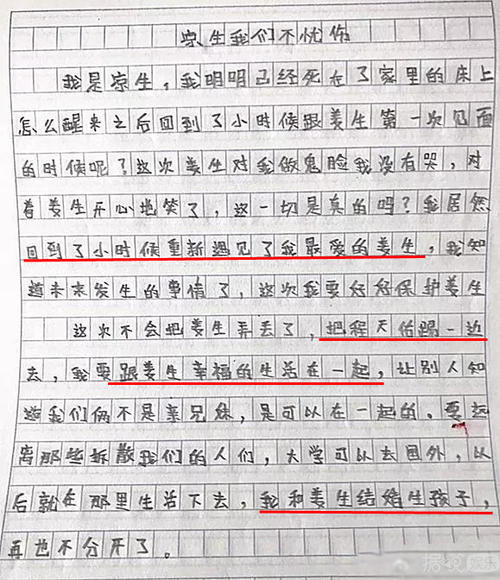 凉生我们不忧伤
我是凉生，我明明已经死在了家里的床上
怎么醒来之后回到了小时候跟姜生第一次见面
的时候呢？这次姜生对我做鬼脸我没有哭，对
着姜生开心地笑了，这一切是真的吗？我居然
回到了小时候重新遇见了我最爱的姜生，我知
道未来发生的事情了，这次我要好好保护姜生
这次不会把姜生弄丢了，把程天佑踢一边
去，我要跟姜生幸福的生活在一起，让别人知
道我们俩不是亲兄妹，是可以在一起的，要远
离那些拆散我们的人们，大学可以去国外，以
后就在那里生活下去，我和姜生结婚生孩子，
再也不分开了。